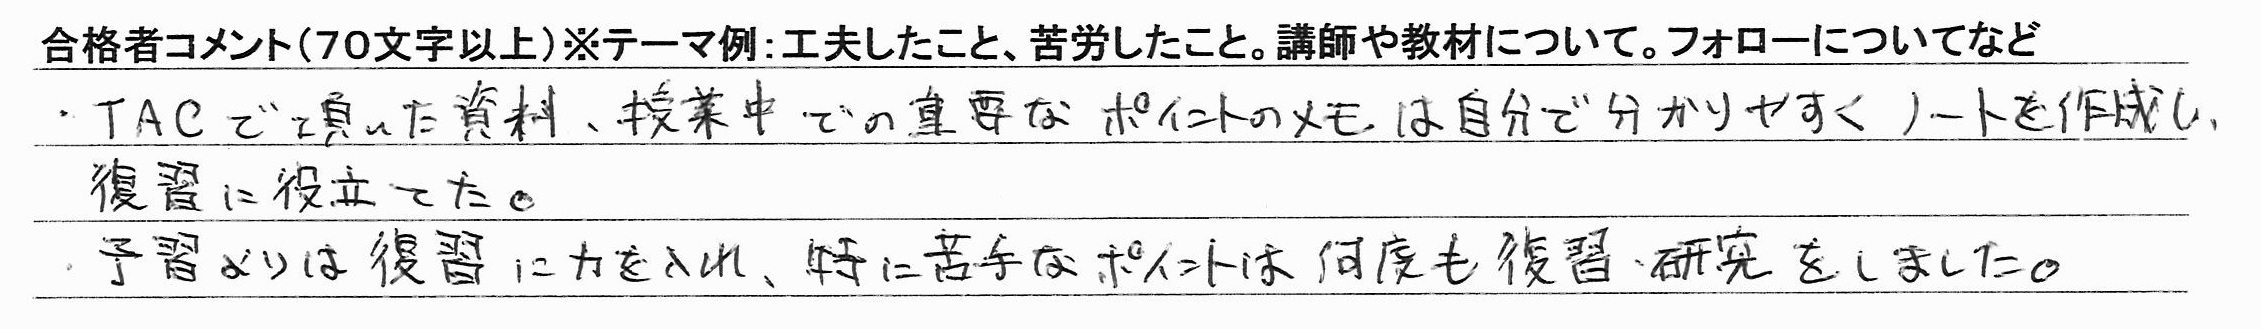 合格者コメント(70文字以上)※テーマ例:工夫したこと、苦労したこと。講師や教材について。フォローについてなど
・TACで頂いた資料、授業中での重要なポイントのメモは自分で分かりやすくノートを作成し、
復習に役立てた。
・予習よりは復習に力を入れ、特に苦手なポイントは何度も復習・研究をしました。